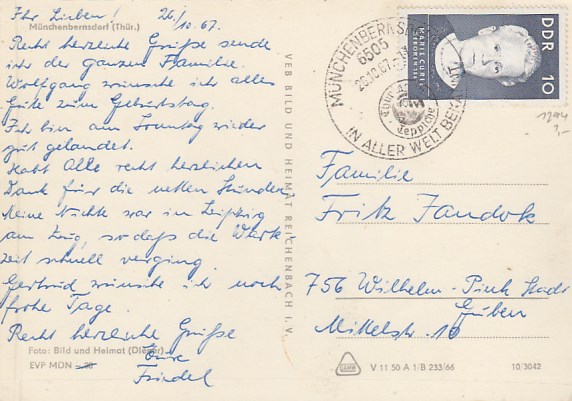 Ihr Lieben! 26./10.67.
Münchenbernsdorf (Thür.)
Recht herzliche Grüße sende
ich der ganzen Familie.
Wolfgang wünsche ich alles
Gute zum Geburtstag.
Ich bin am Sonntag wieder
gut gelandet.
Habt Alle recht herzlichen
Dank für die netten Stunden.
Meine Nichte war in Leipzig
am Zug, so daß die Warte-
zeit schnell verging.
Gertrud wünsche ich noch
frohe Tage.
Recht herzliche Grüße
Eure
Friedel
Foto: Bild und Heimat (Dießner)
EVP MDN
VEB BILD UND HEIMAT REICHENBACH I. V.
MÜNCHENBERNSDORF
6505
26.10.67
Teppiche
IN ALLER WELT BEKANNT
MARIE CURIE
DDR 10
Familie
Fritz Jandork
756 Wilhelm-Pieck-Stadt
Guben
Mittelstr. 10
V 11 50 A 1/B 233/66 10/3042